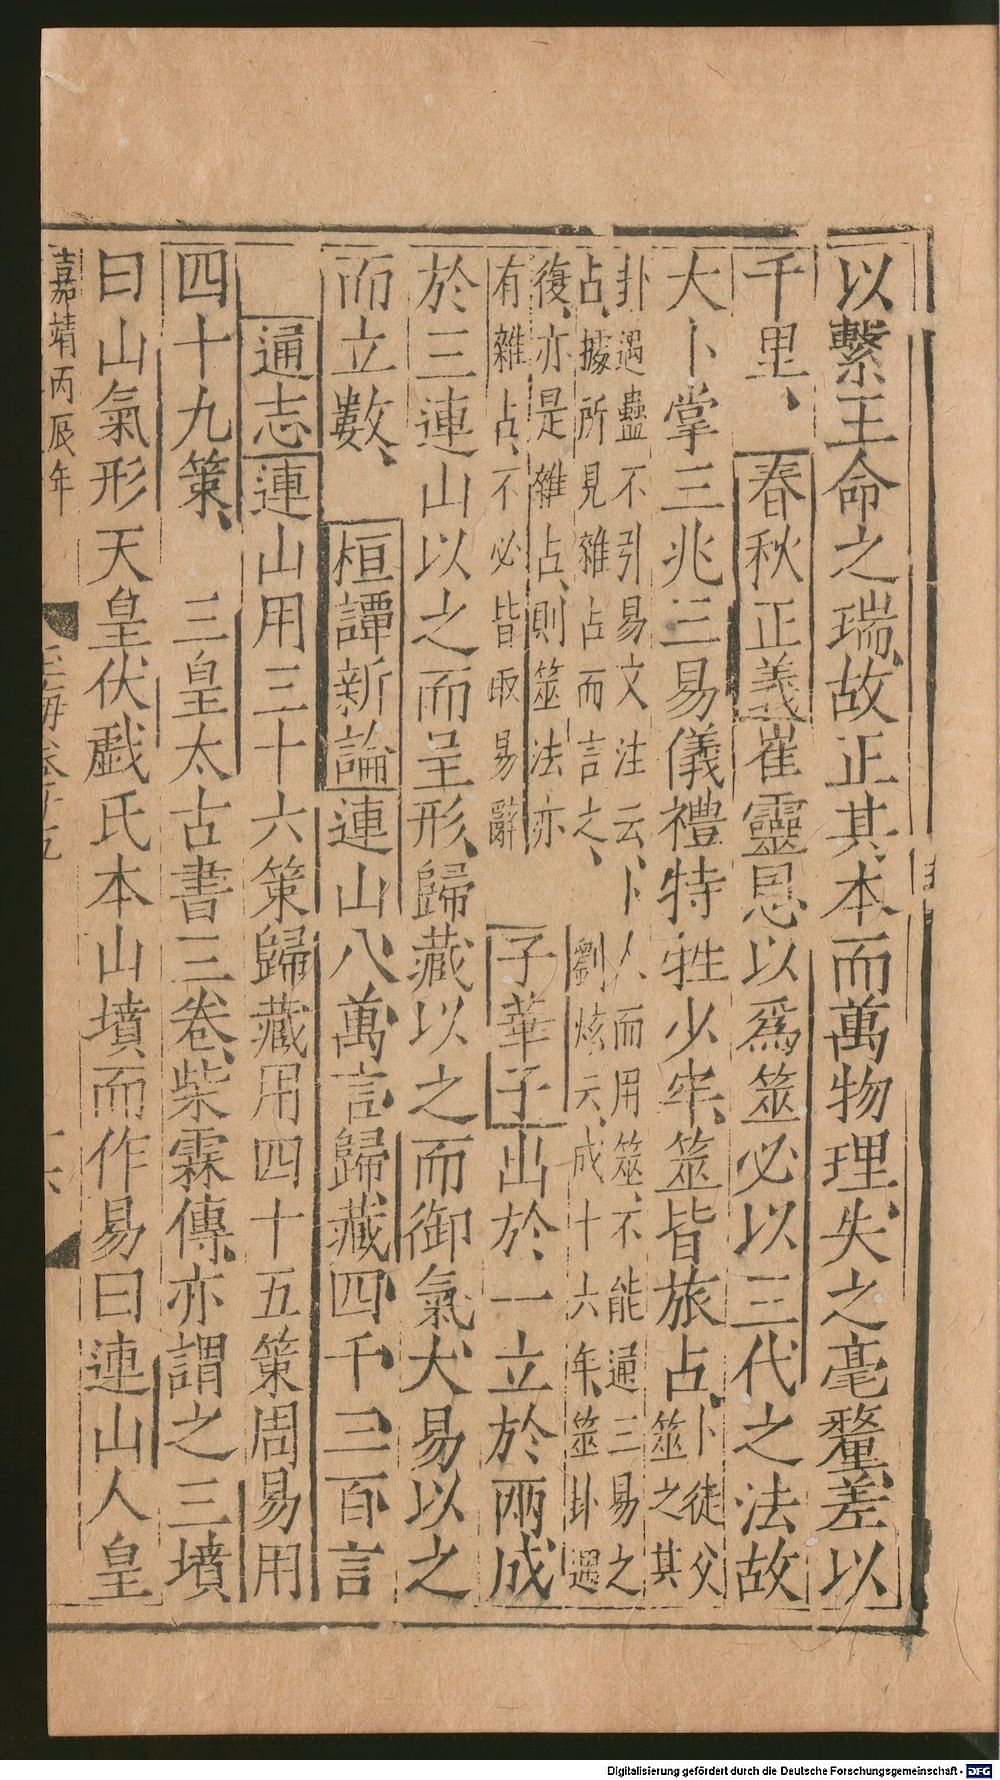 以繫王命之瑞、故正其本而萬物理、失之毫釐、差以
千里、　春秋正義崔靈恩以爲筮必以三代之法故
大卜掌三兆三易儀禮特牲少牢、筮皆旅占、卜徒父
筮之其
卦遇蠱不引易文注云、卜人而用筮、不能通三易之
占、據所見雜占而言之、劉炫云、成十六年、筮卦遇
復、亦是雜占、則筮法亦
有雜占、不必皆取易辭
子華子出於一立於兩成
於三連山以之而呈形、歸藏以之而御氣、大易以之
而立數、　桓譚新論連山八萬言歸藏四千三百言
通志連山用三十六策歸藏用四十五策周易用
四十九策、　三皇太古書三卷、柴霖傳、亦謂之三墳
曰山氣形天皇伏戯氏本山墳而作易曰連山人皇
嘉靖丙辰年